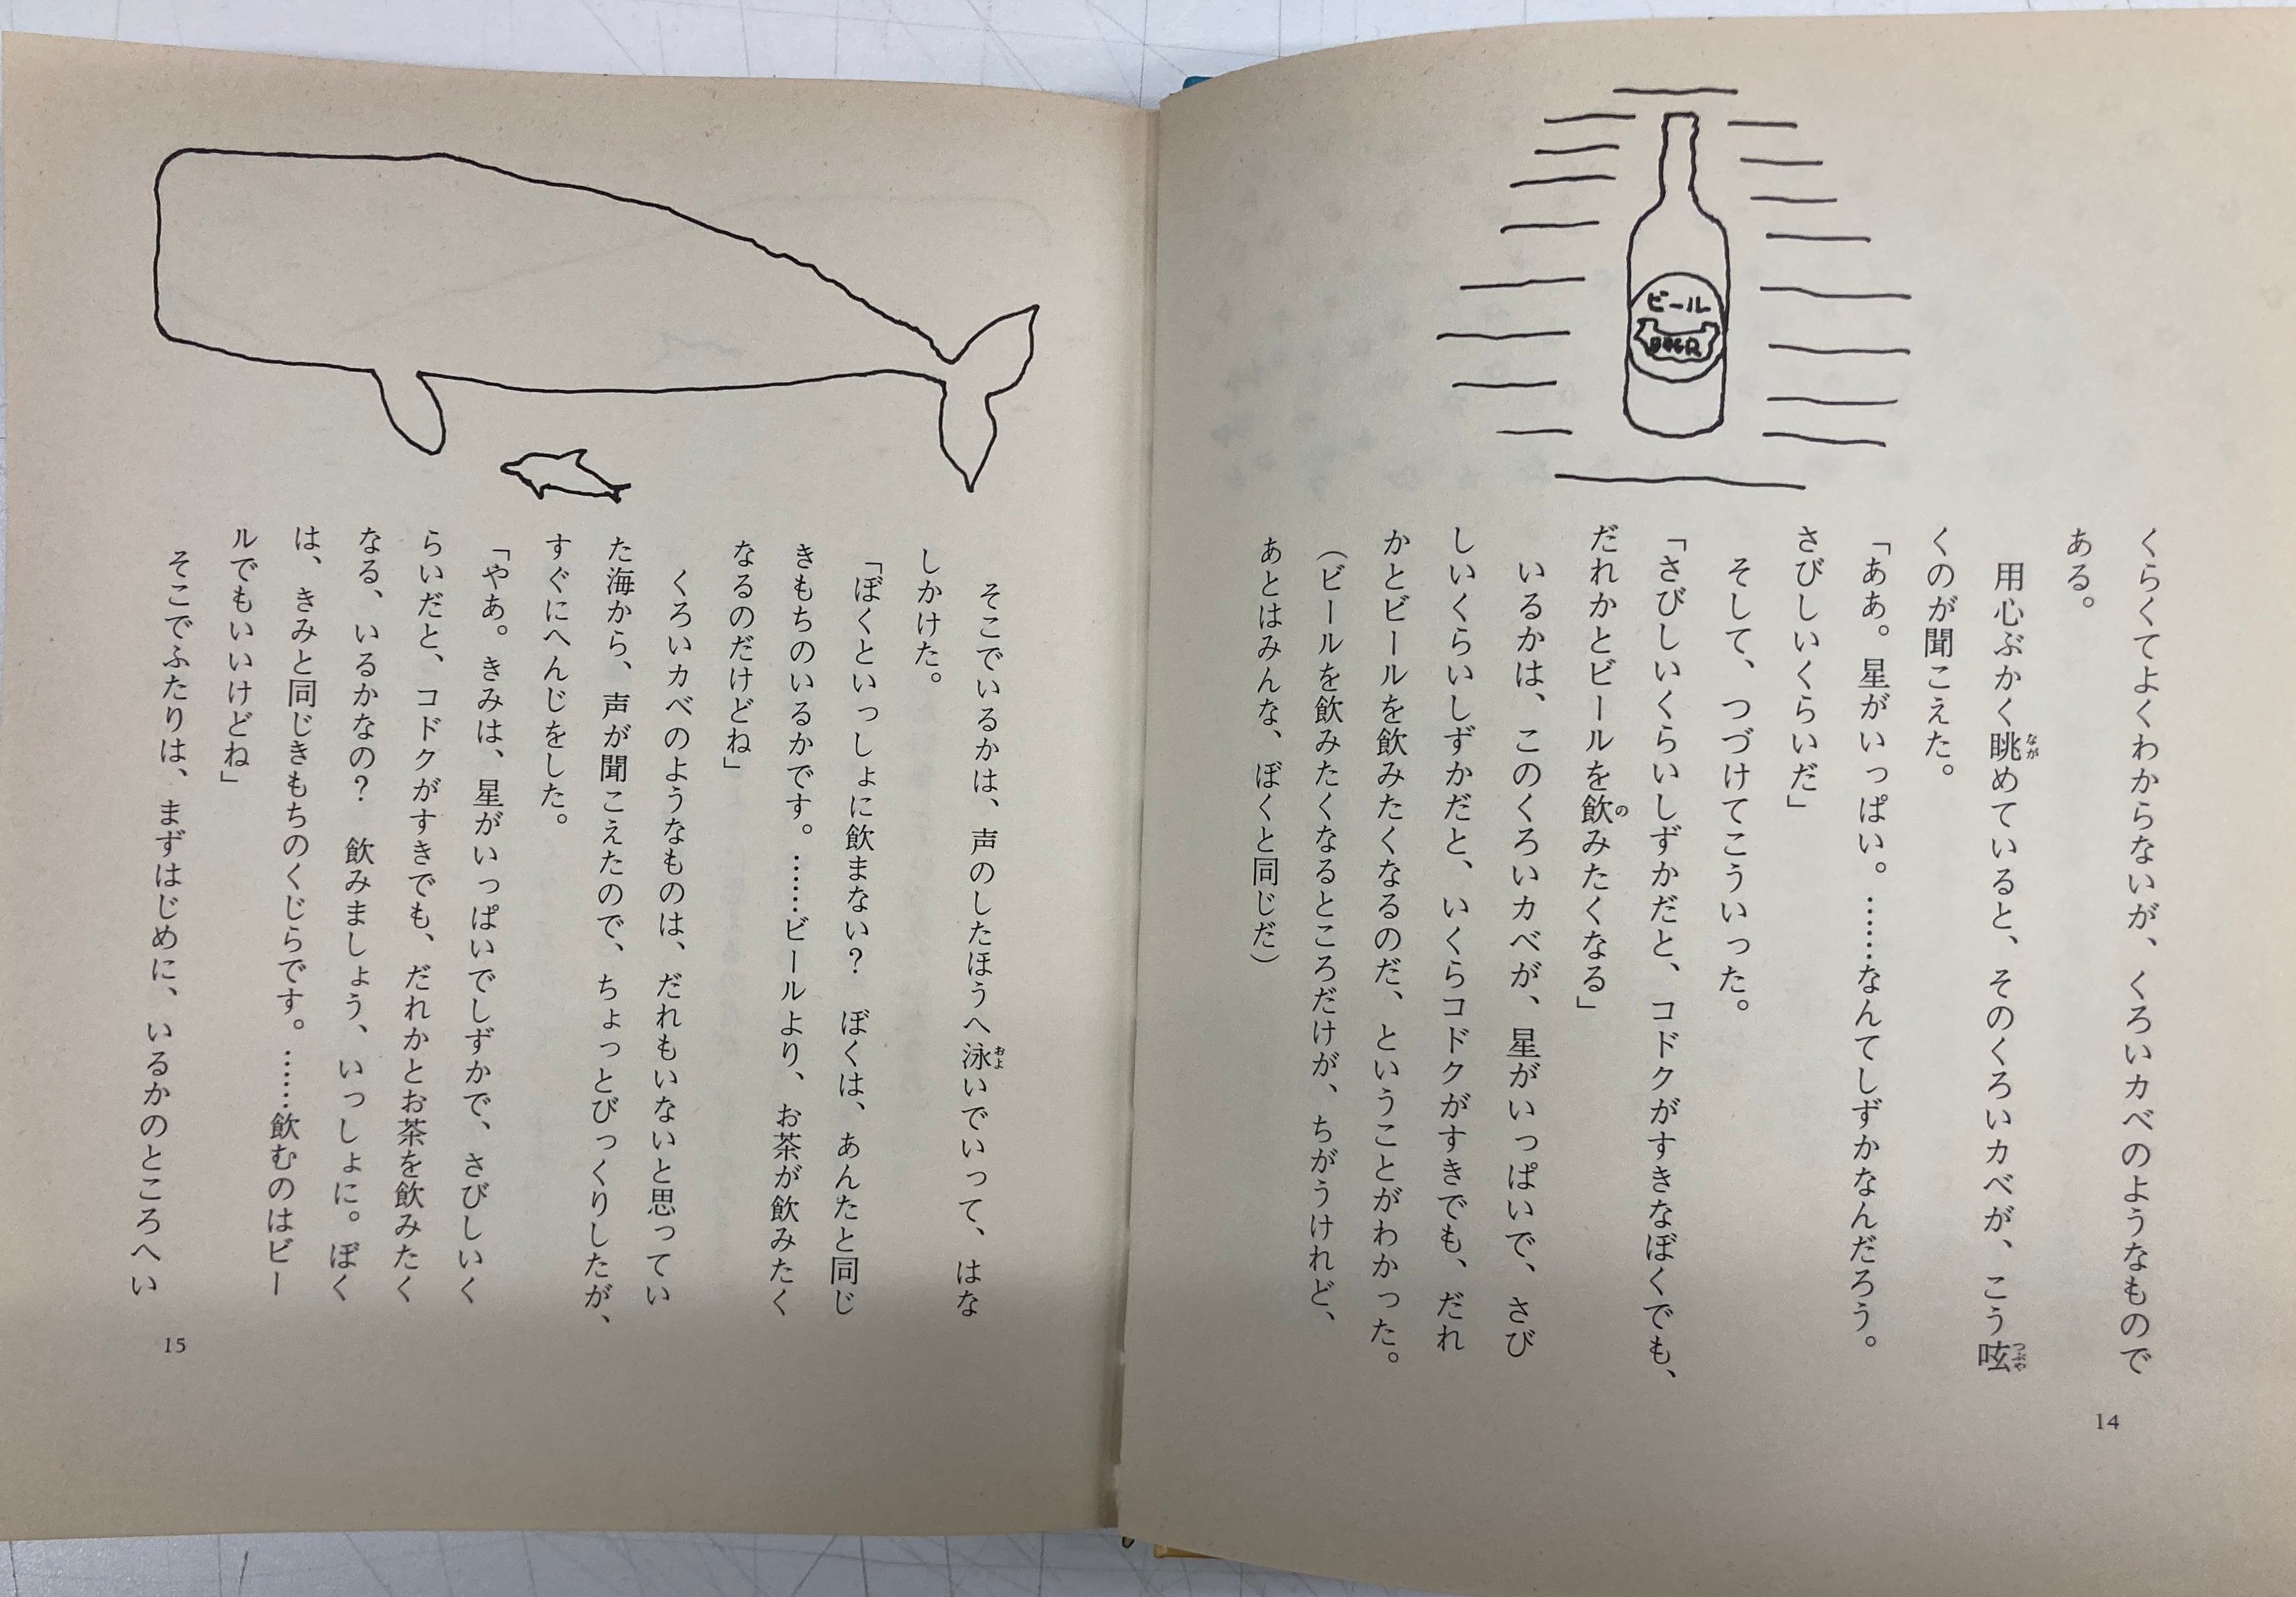 ビール
BEER
くらくてよくわからないが、くろいカベのようなもので
ある。
用心ぶかく眺めていると、そのくろいカベが、こう呟
くのが聞こえた。
「ああ。星がいっぱい。……なんてしずかなんだろう。
さびしいくらいだ」
そして、つづけてこういった。
「さびしいくらいしずかだと、コドクがすきなぼくでも、
だれかとビールを飲みたくなる」
いるかは、このくろいカベが、星がいっぱいで、さび
しいくらいしずかだと、いくらコドクがすきでも、だれ
かとビールを飲みたくなるのだ、ということがわかった。
（ビールを飲みたくなるところだけが、ちがうけれど、
あとはみんな、ぼくと同じだ）
14
そこでいるかは、声のしたほうへ泳いでいって、はな
しかけた。
「ぼくといっしょに飲まない？　ぼくは、あんたと同じ
きもちのいるかです。……ビールより、お茶が飲みたく
なるのだけどね」
くろいカベのようなものは、だれもいないと思ってい
た海から、声が聞こえたので、ちょっとびっくりしたが、
すぐにへんじをした。
「やあ。きみは、星がいっぱいでしずかで、さびしいく
らいだと、コドクがすきでも、だれかとお茶を飲みたく
なる、いるかなの？　飲みましょう、いっしょに。ぼく
は、きみと同じきもちのくじらです。……飲むのはビー
ルでもいいけどね」
そこでふたりは、まずはじめに、いるかのところへい
15